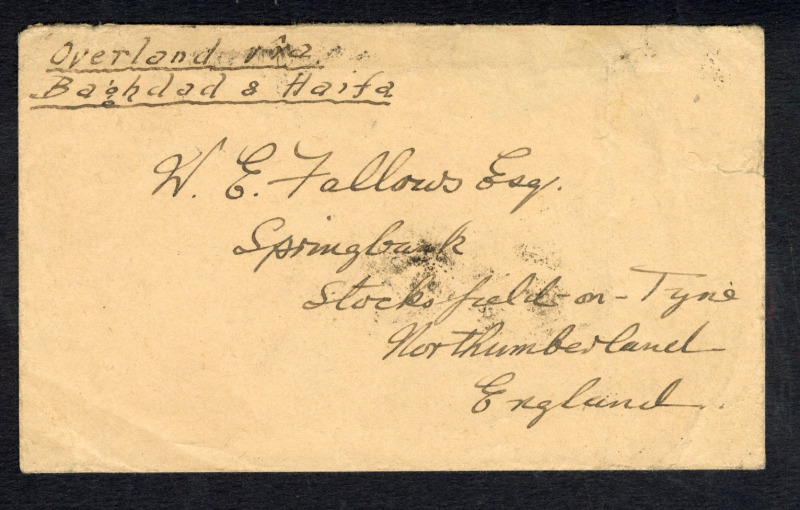 Overland via
Baghdad & Haifa
W. E. Fallows Esq.
Springbank
Stocksfield-on-Tyne
Northumberland
England.